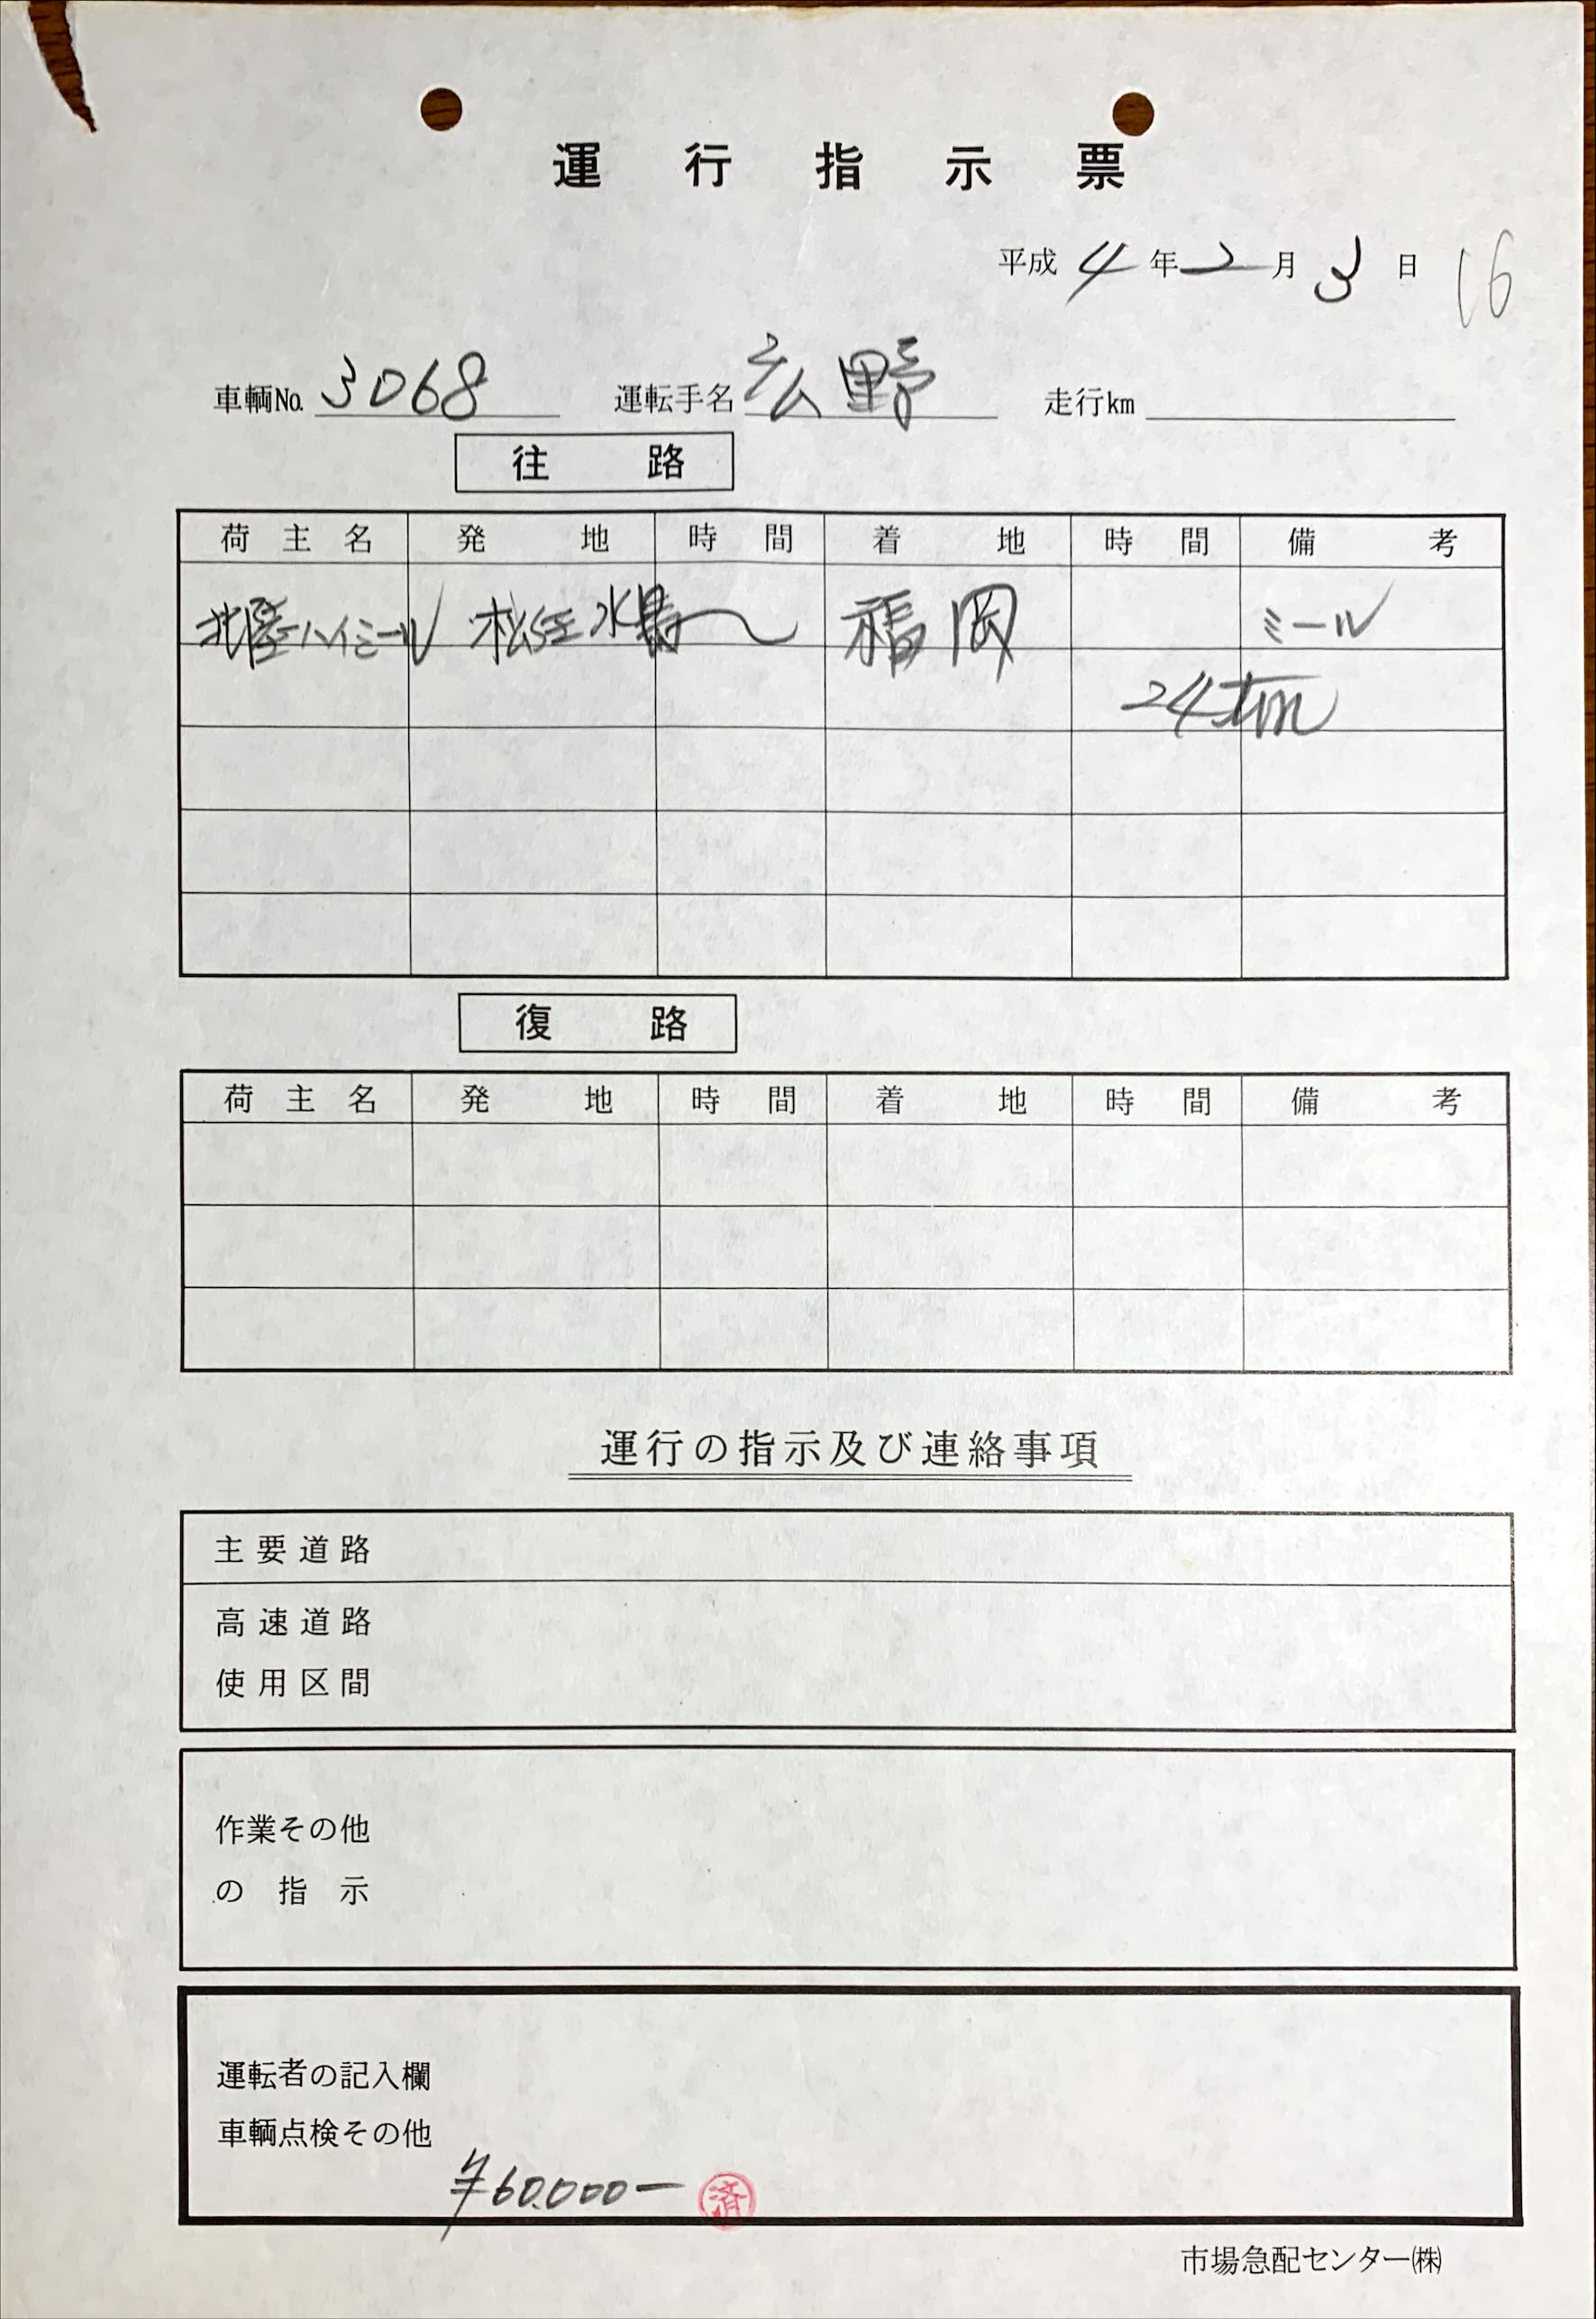 運行指示票
平成4年2月3日 16
車輌No. 3068 運転手名 広野 走行km
往路
荷主名 発地 時間 着地 時間 備考
ハイミール 水島〜 福岡 ミール
24
復路
荷主名 発地 時間 着地 時間 備考
運行の指示及び連絡事項
主要道路
高速道路
使用区間
作業その他
の指示
運転者の記入欄
車輌点検その他
¥60.000− 済
市場急配センター㈱